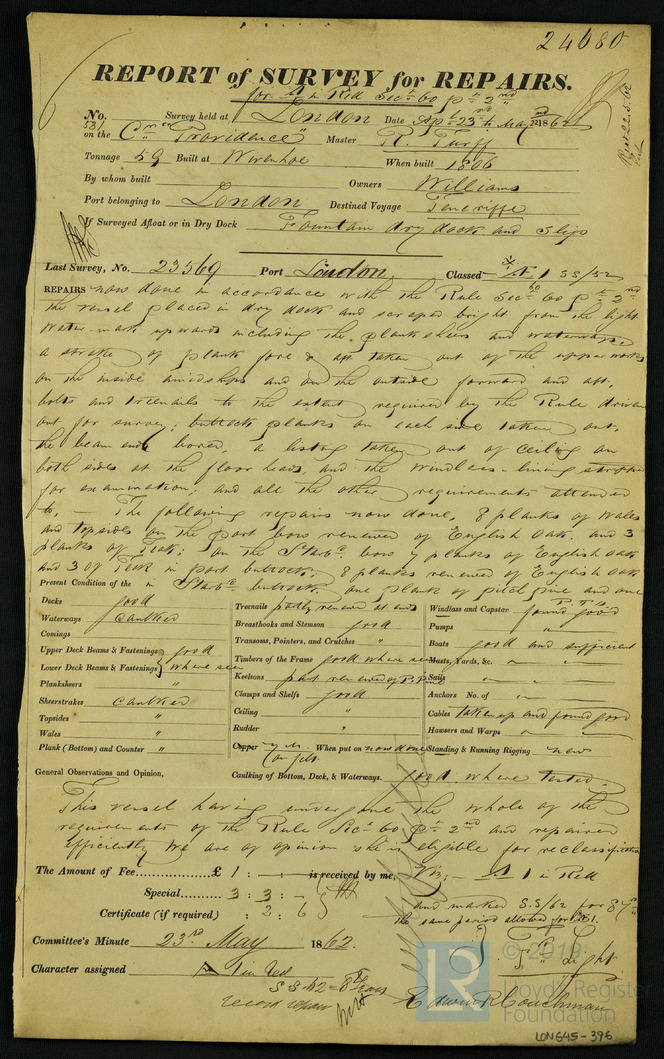 24680
REPORT of SURVEY for REPAIRS.
for A in Red Secn 60 pt 2nd
No. Survey held at London Date Apl 23rd to May 22nd 1862
on the Cr "Providence" Master R. Turff
Tonnage 59 Built at Wivenhoe When built 1806
By whom built Owners Williams
Port belonging to London Destined Voyage Teneriffe
If Surveyed Afloat or in Dry Dock Fountain dry dock and Slip
Last Survey, No. 23569 Port London Classed Æ 1 SS/52
REPAIRS now done in accordance with the Rule Secn 60 pt 2nd
the vessel placed in dry dock and scraped bright from the light
water mark upwards including the planksheers and waterways,
a strake of plank fore & aft taken out of the upperworks
on the inside amidships and on the outside forward and aft,
bolts and treenails to the extent required by the Rule driven
out for survey; buttock planks on each side taken out,
the beam ends bored, a listing taken out of ceiling on
both sides at the floor heads, and the windlass lining stripped
for examination; and all the other requirements attended
to, – The following repairs now done. 8 planks of wales
and topsides on the port bow renewed of English oak, and 3
planks of Teak; on the Starbd bow 7 planks of English oak
and 3 of Teak in port buttock, 8 planks renewed of English oak
in Starbd buttock, one plank of pitch pine and one
Present Condition of the
Decks good
Waterways caulked
Comings
Upper Deck Beams & Fastenings good
Lower Deck Beams & Fastenings where seen
Planksheers "
Sheerstrakes caulked
Topsides "
Wales "
Plank (Bottom) and Counter "
Treenails partly renewed at ends
Breasthooks and Stemson good
Transoms, Pointers, and Crutches "
Timbers of the Frame good where seen
Keelsons part renewed of P. Pine
Clamps and Shelfs good
Ceiling "
Rudder "
Copper y.m. When put on now done
on felt
Windlass and Capstan found good
Pumps "
Boats good and sufficient
Masts, Yards, &c. " "
Sails " "
Anchors No. of " "
Cables taken up and found good
Hawsers and Warps " "
Standing & Running Rigging new
General Observations and Opinion, Caulking of Bottom, Deck, & Waterways. good where tested.
This vessel having undergone the whole of the
requirements of the Rule Secn 60 pt 2nd and repaired
efficiently we are of opinion she is eligible for reclassification
The Amount of Fee £ 1 : – : – is received by me, Viz; – A 1 in Red
Special 3 : 3 : –
and marked S.S/62 for 8 Yrs
Certificate (if required) : 2 : 6
the same period allowed for Æ1.
Committee's Minute 23rd May 1862.
Character assigned A 1 in Red
S S 62 = 8 Years
record repair
Light
Edwin R Couchman
© 2019
LR
Lloyd's Register
Foundation
LON645-396